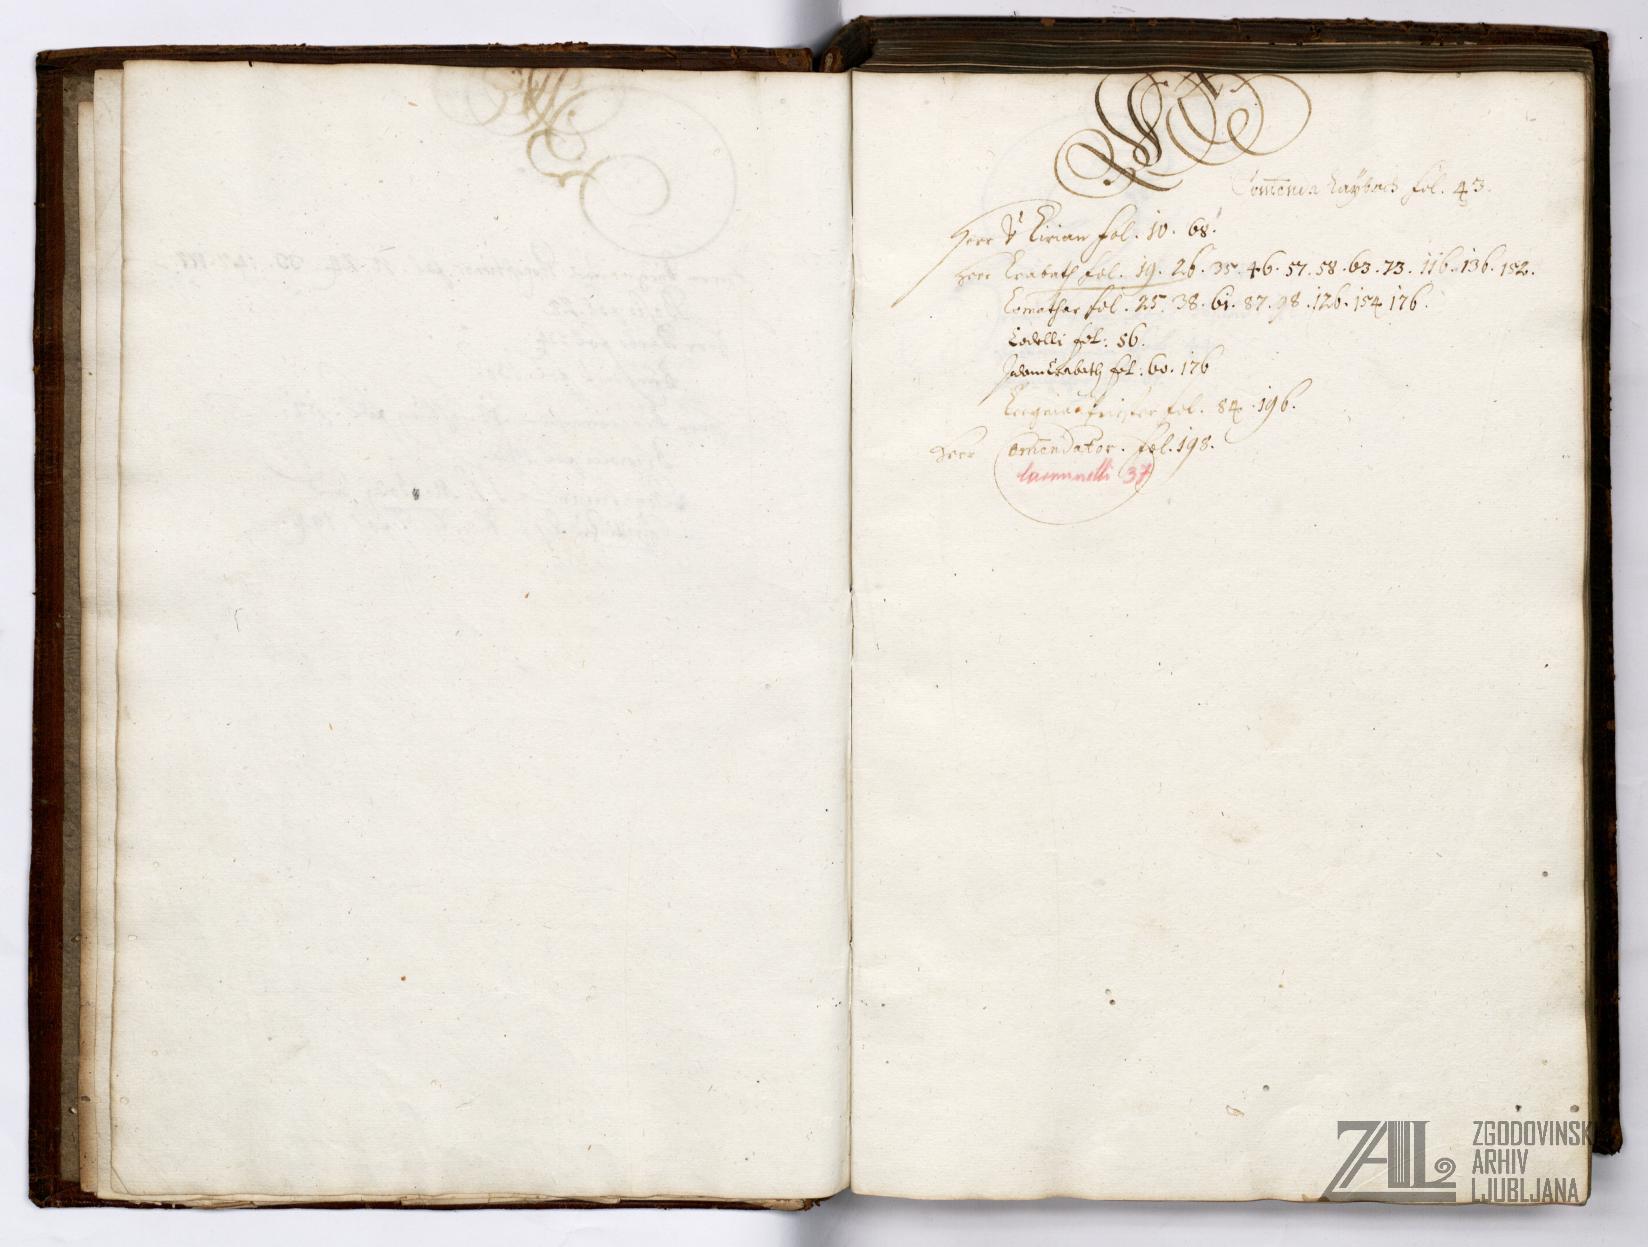 C
Com̄enda Laÿbach fol. 43.
Herr Dr Cirian fol. 10. 68.
Herr Crabath fol. 19. 26. 35. 46. 57. 58. 63. 73. 116. 136. 152.
Comathar fol. 25. 38. 61. 87. 98. 126. 154. 176.
Codelli fol. 56.
Crabath fol. 60. 176
fol. 84. 196.
Herr Com̄endator. fol. 198.
37
ZAL ZGODOVINSKI
ARHIV
LJUBLJANA